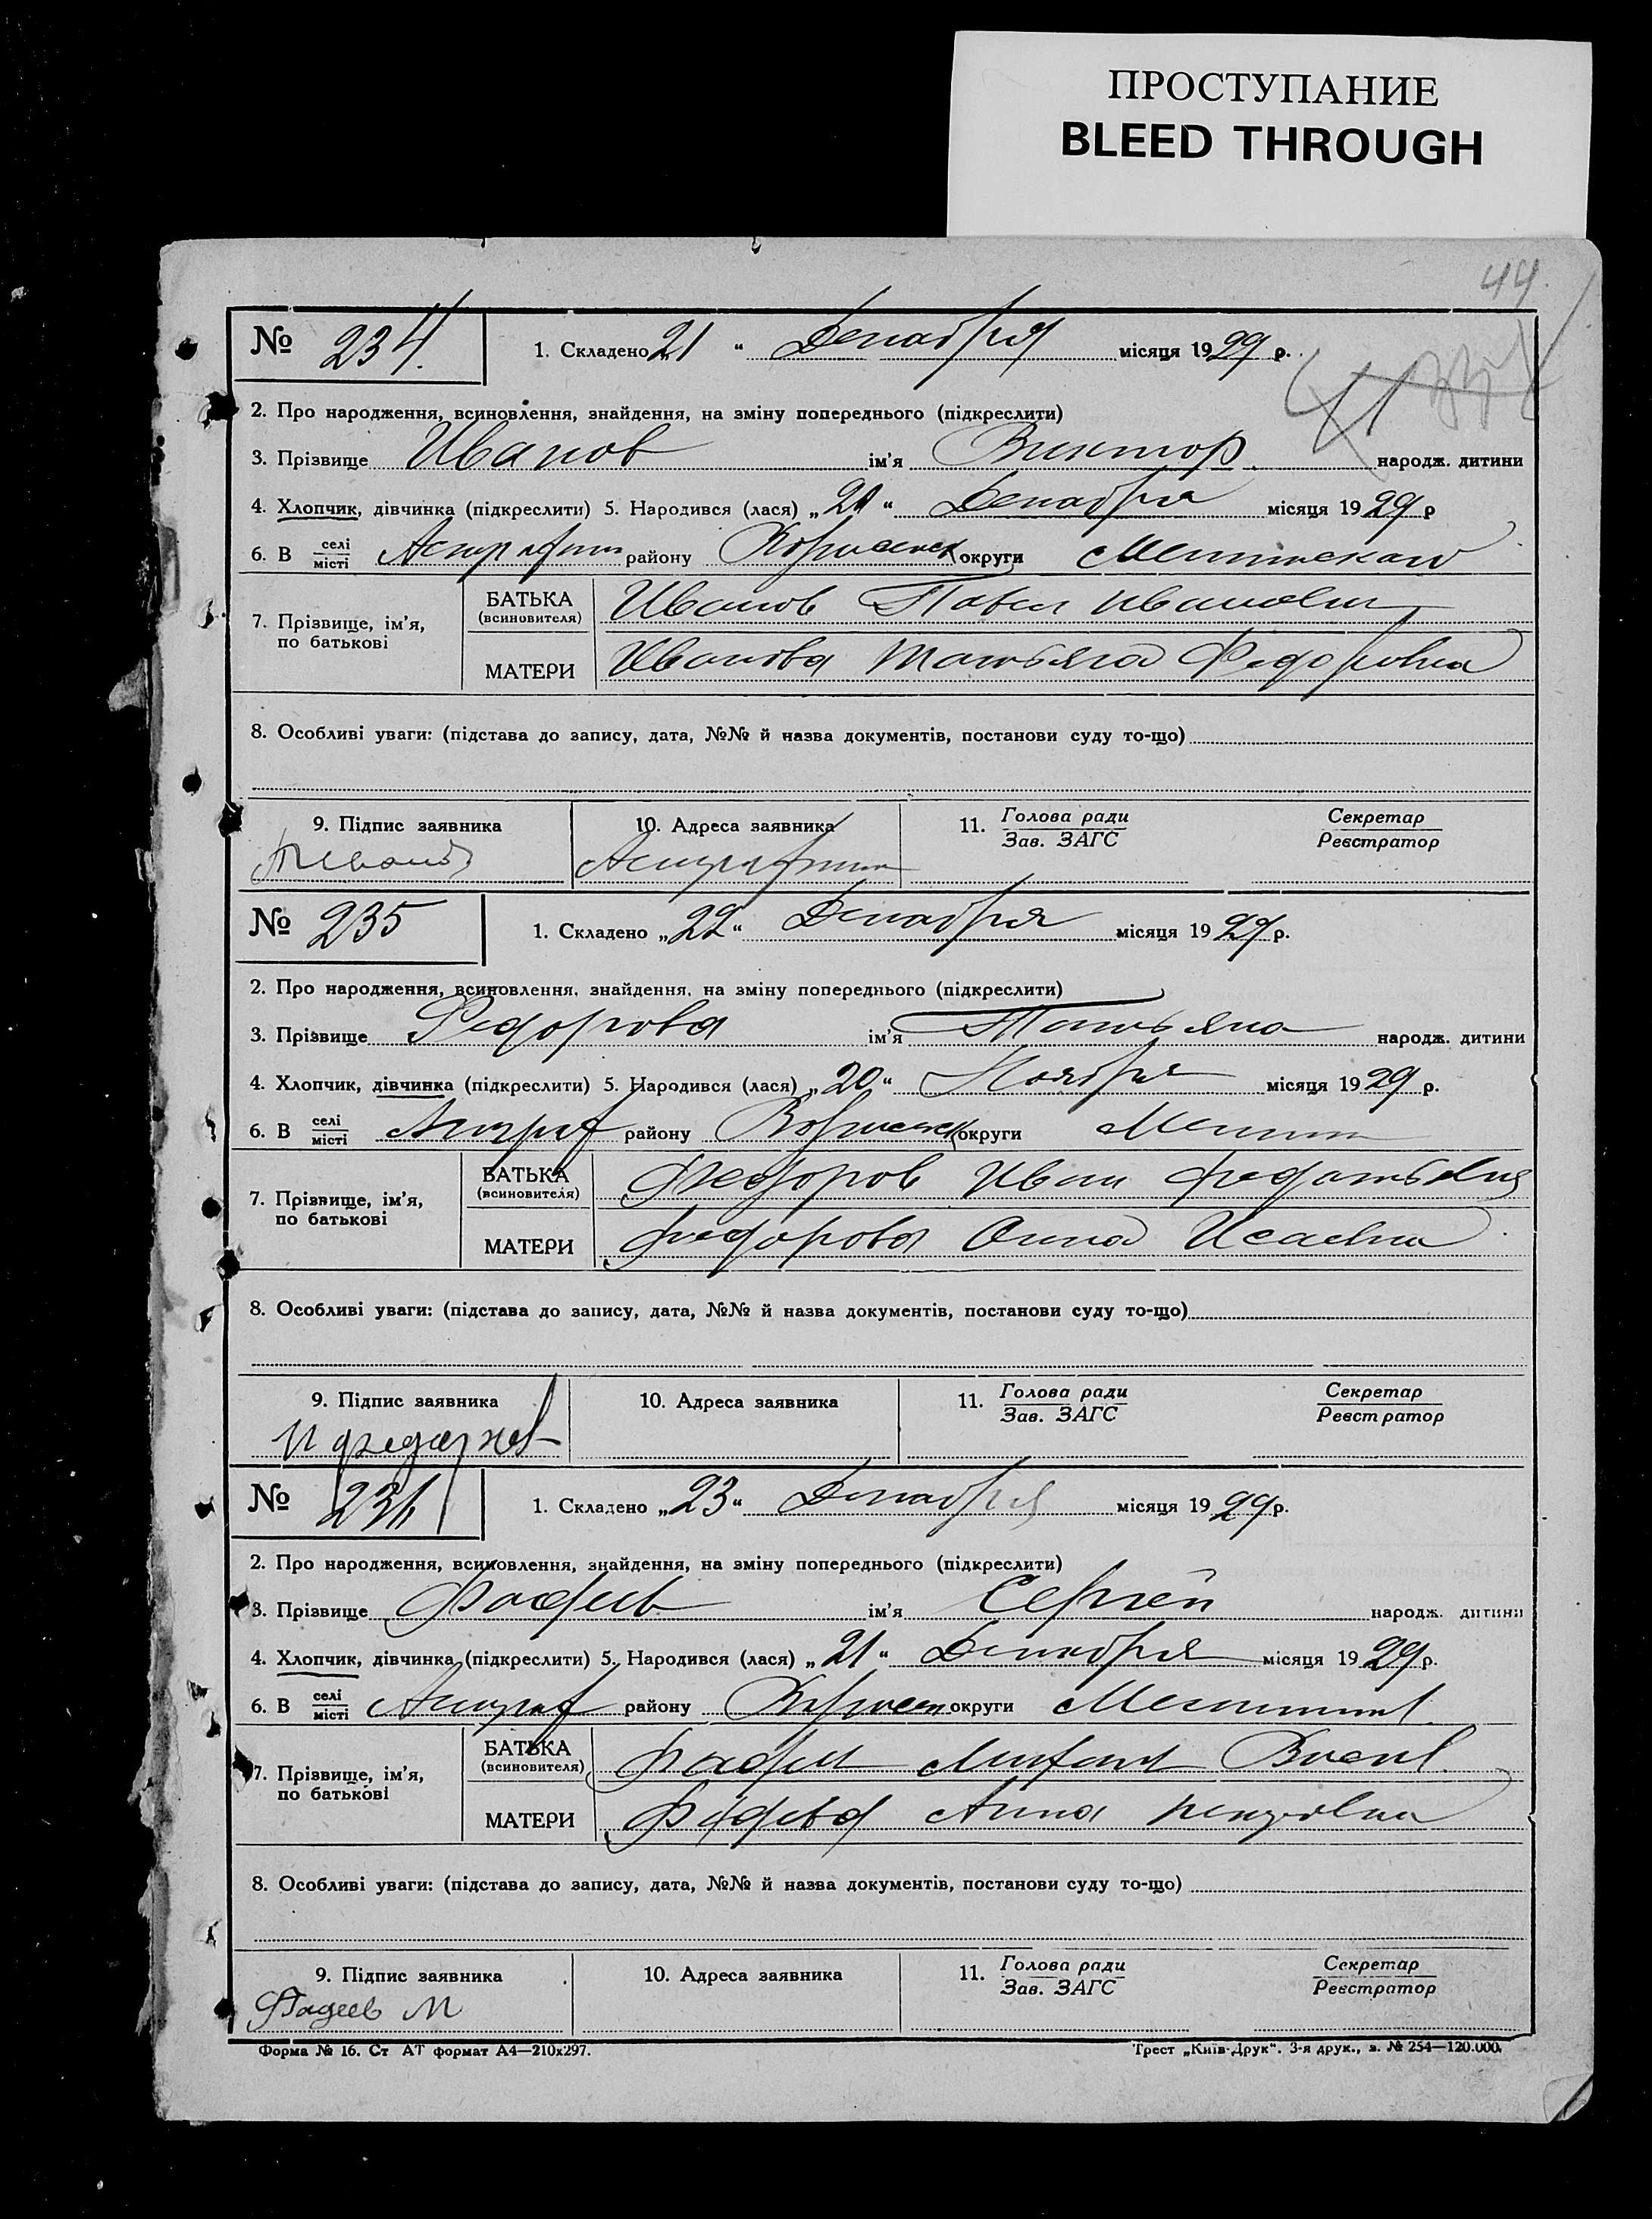 ПРОСТУПАНИЕ
BLEED THROUGH
44.
№ 234. 1. Складено 21 " Декабря місяця 1929 р.
2. Про народження, всиновлення, знайдення, на зміну попереднього (підкреслити)
3. Прізвище Иванов ім'я Виктор народж. дитини
4. Хлопчик, дівчинка (підкреслити) 5. Народився (лася) „ 21 “ Декабря місяця 1929 р
6. В селі місті району округи
7. Прізвище, ім'я, по батькові
БАТЬКА (всиновителя) Иванов Павел Иванович
МАТЕРИ Иванова Татьяна Федоровна
8. Особливі уваги: (підстава до запису, дата, №№ й назва документів, постанови суду то-що)
9. Підпис заявника 10. Адреса заявника 11. Голова ради Зав. ЗАГС Секретар Реєстратор
№ 235 1. Складено „ 22 “ Декабря місяця 1929 р.
2. Про народження, всиновлення, знайдення, на зміну попереднього (підкреслити)
3. Прізвище Федорова ім'я Татьяна народж. дитини
4. Хлопчик, дівчинка (підкреслити) 5. Народився (лася) „ 20 “ Ноября місяця 1929 р.
6. В селі місті району округи
7. Прізвище, ім'я, по батькові
БАТЬКА (всиновителя) Федоров Иван
МАТЕРИ Федорова Анна Исаевна
8. Особливі уваги: (підстава до запису, дата, №№ й назва документів, постанови суду то-що)
9. Підпис заявника 10. Адреса заявника 11. Голова ради Зав. ЗАГС Секретар Реєстратор
И
№ 236 1. Складено „ 23 “ Декабря місяця 1929 р.
2. Про народження, всиновлення, знайдення, на зміну попереднього (підкреслити)
3. Прізвище Фадеев ім'я Сергей народж. дитини
4. Хлопчик, дівчинка (підкреслити) 5. Народився (лася) „ 21 “ Декабря місяця 1929 р.
6. В селі місті району округи
7. Прізвище, ім'я, по батькові
БАТЬКА (всиновителя) Фадеев
МАТЕРИ Фадеева Анна
8. Особливі уваги: (підстава до запису, дата, №№ й назва документів, постанови суду то-що)
9. Підпис заявника 10. Адреса заявника 11. Голова ради Зав. ЗАГС Секретар Реєстратор
Фадеев М
Форма № 16. Ст АТ формат А4—210х297. Трест „Київ-Друк“. 3-я друк., з. № 254—120.000.